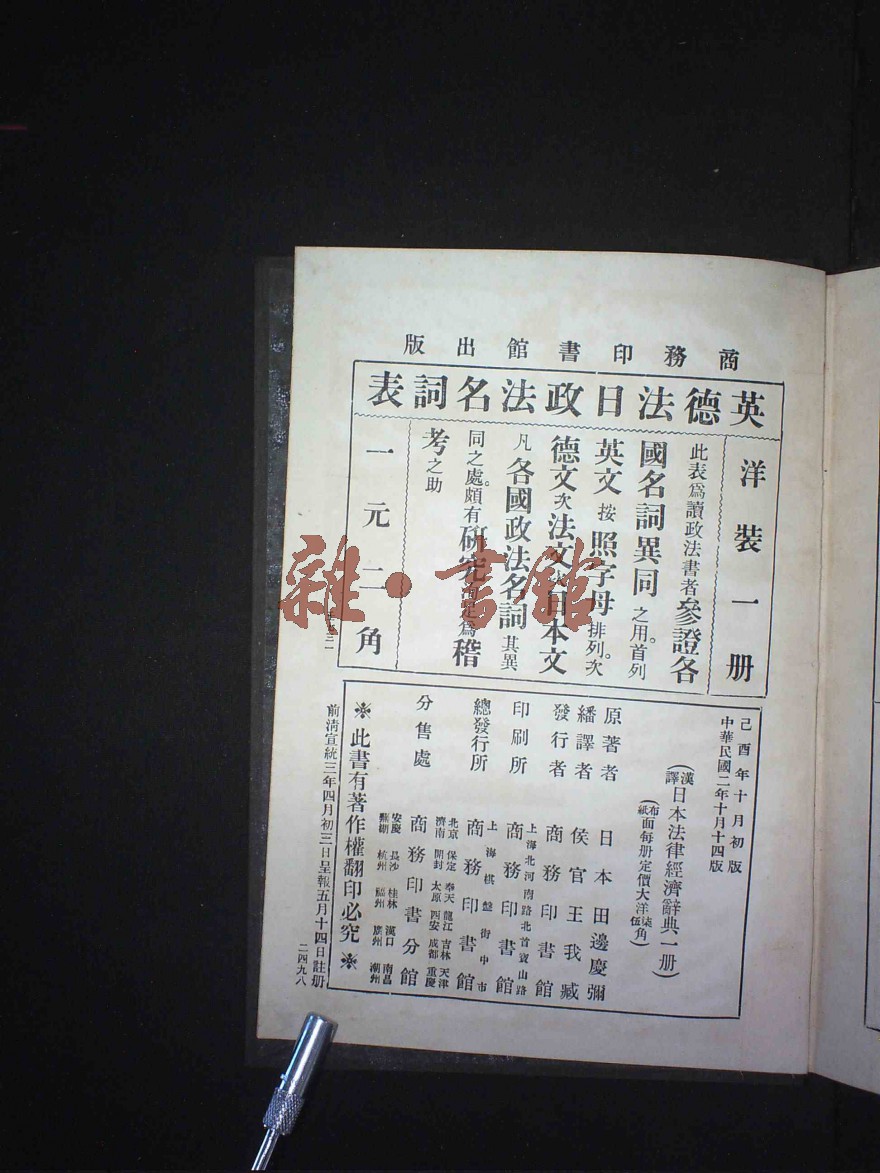 商務印書館出版
英德法日政法名詞表
洋裝一册
此表爲讀政法書者參證各
國名詞異同之用。首列
英文按照字母排列。次
德文次法文次日本文
凡各國政法名詞其異
同之處。頗有研究
考之助
一元二角
己酉年十月初版
中華民國二年十月十四版
(漢譯日本法律經濟辭典一册)
(布紙面每册定價大洋柒伍角)
原著者 日本田邊慶彌
繙譯者 侯官王我臧
發行者 商務印書館
上海北河南路北首寶山路
印刷所 商務印書館
上海棋盤街中市
總發行所 商務印書館
北京 保定 奉天 龍江 吉林 天津
濟南 開封 太原 西安 成都 重慶
分售處 商務印書分館
安慶 長沙 桂林 漢口 南昌
蕪湖 杭州 福州 廣州 潮州
※此書有著作權翻印必究※
前清宣統三年四月初三日呈報五月十四日註册
二四九八
雜·書館